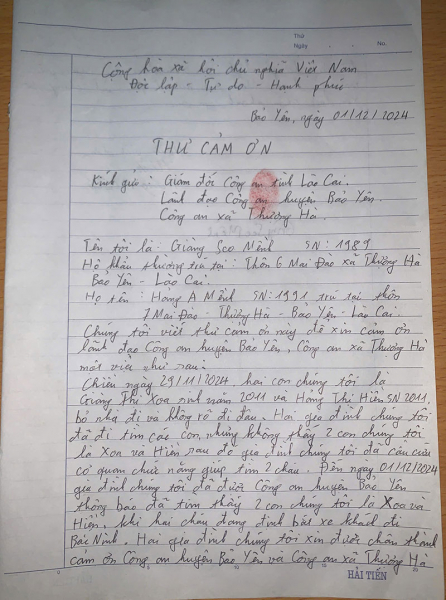 Thứ
Ngày No.
Cộng hòa xã hội chủ nghĩa Việt Nam
Độc lập - Tự do - Hạnh phúc
Bảo Yên, ngày 01/12/2024
THƯ CẢM ƠN
Kính gửi: Giám đốc Công an tỉnh Lào Cai.
Lãnh đạo Công an huyện Bảo Yên.
Công an xã Thượng Hà.
Tên tôi là: Giàng Seo Mênh SN: 1989
Hộ khẩu thường trú tại: Thôn 6 Mai Đào xã Thượng Hà
Bảo Yên - Lào Cai.
Họ tên: Hang A Mênh SN: 1991 trú tại thôn
7 Mai Đào - Thượng Hà - Bảo Yên - Lào Cai.
Chúng tôi viết thư cảm ơn này để xin cảm ơn
lãnh đạo Công an huyện Bảo Yên, Công an xã Thượng Hà
một việc như sau:
Chiều ngày 29/11/2024 hai con chúng tôi là
Giàng Thị Xoa sinh năm 2011 và Hang Thị Hiền SN 2011,
bỏ nhà đi và không rõ đi đâu. Hai gia đình chúng tôi
đã đi tìm các con, nhưng không thấy 2 con chúng tôi
là Xoa và Hiền sau đó gia đình chúng tôi đã cầu cứu
cơ quan chức năng giúp tìm 2 cháu. Đến ngày 01/12/2024
gia đình chúng tôi đã được Công an huyện Bảo Yên
thông báo đã tìm thấy 2 con chúng tôi là Xoa và
Hiền, khi hai cháu đang định bắt xe khách đi
Bắc Ninh. Hai gia đình chúng tôi xin được chân thành
cảm ơn Công an huyện Bảo Yên và Công an xã Thượng Hà
HẢI TIẾN